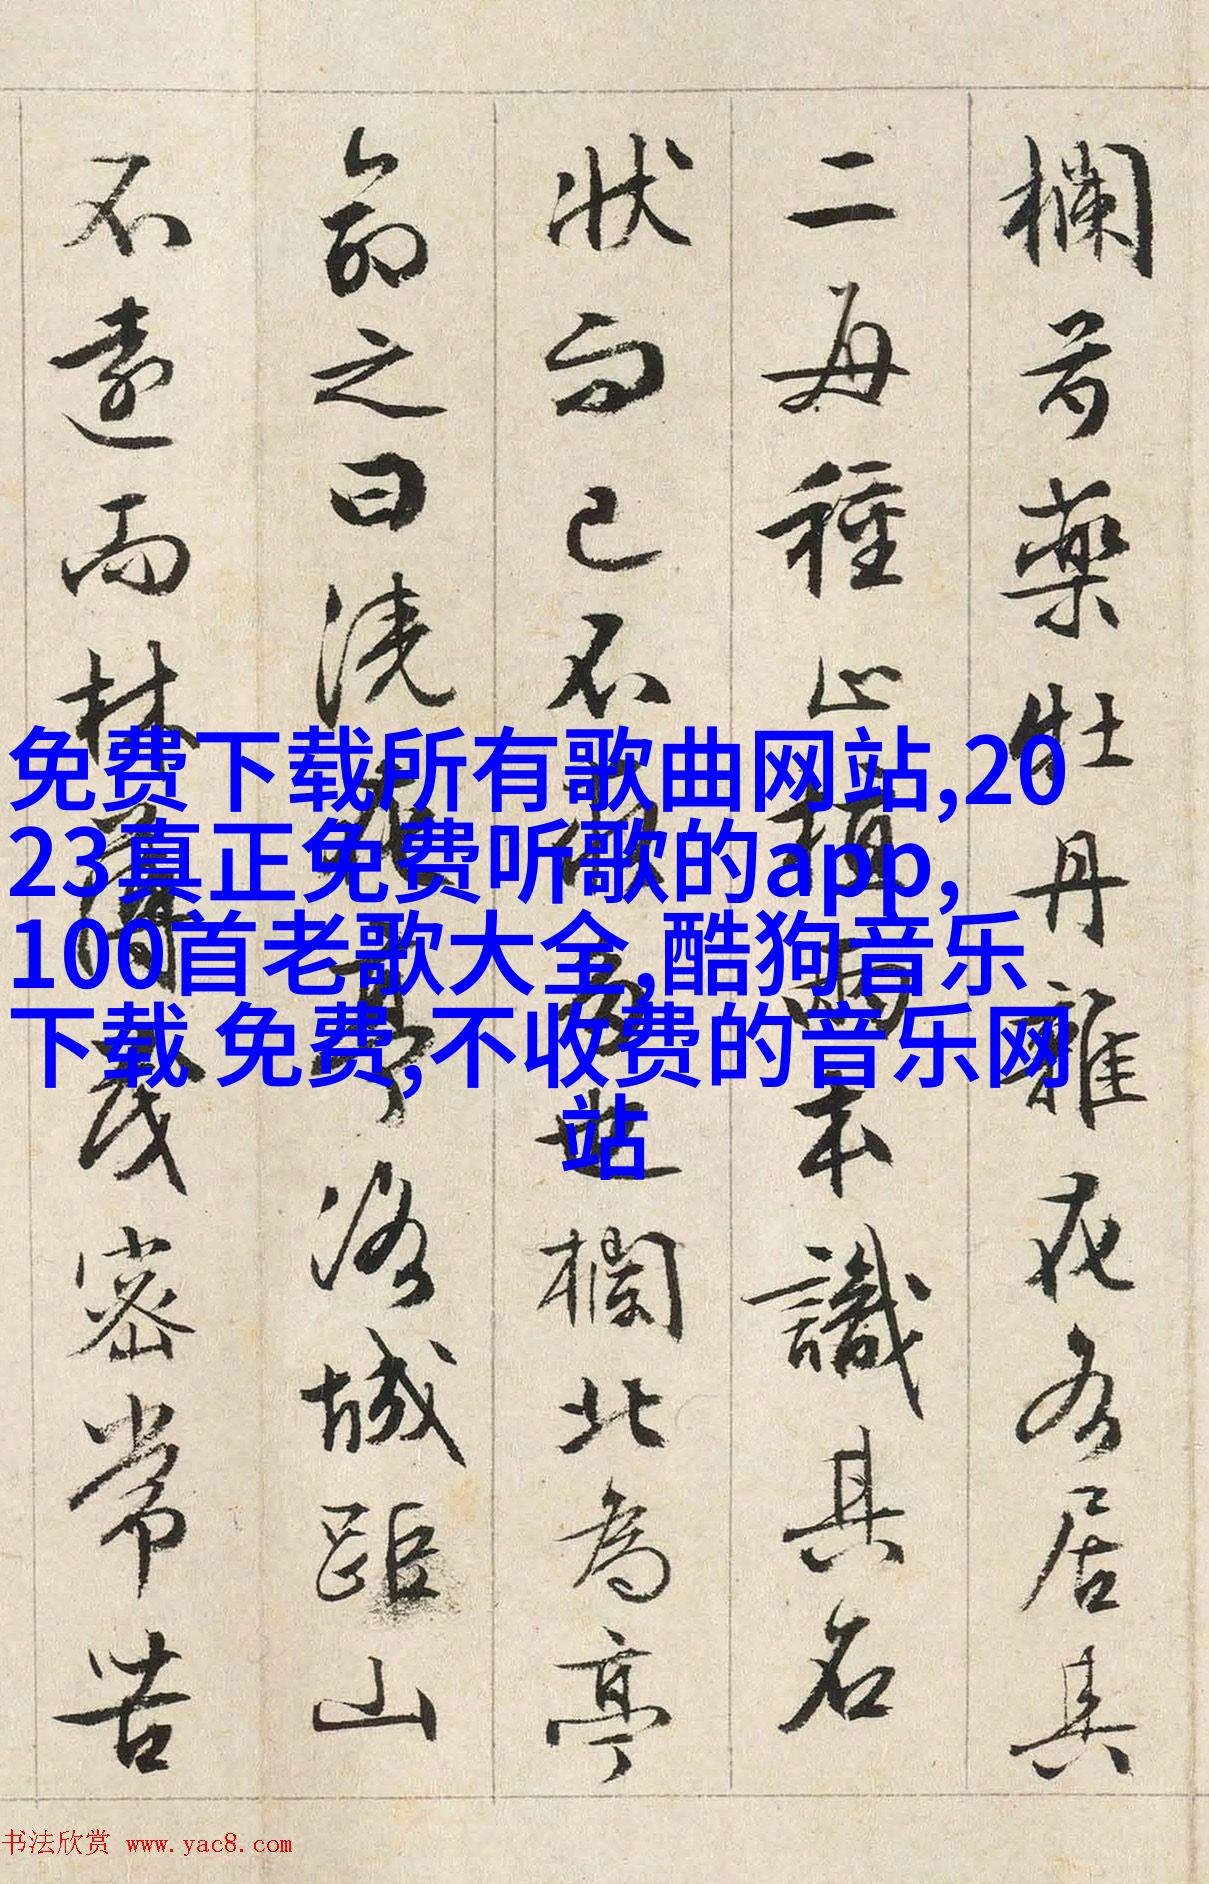 欄芍藥牡丹雜花各居其
二每種止植兩本識其名
狀而已不求多也欄北為亭
命之曰澆花亭洛城距山
不遠而林薄茂密常苦
免费下载所有歌曲网站,20
23真正免费听歌的app,
100首老歌大全,酷狗音乐
下载 免费,不收费的音乐网
站
书法欣赏 www.yac8.com